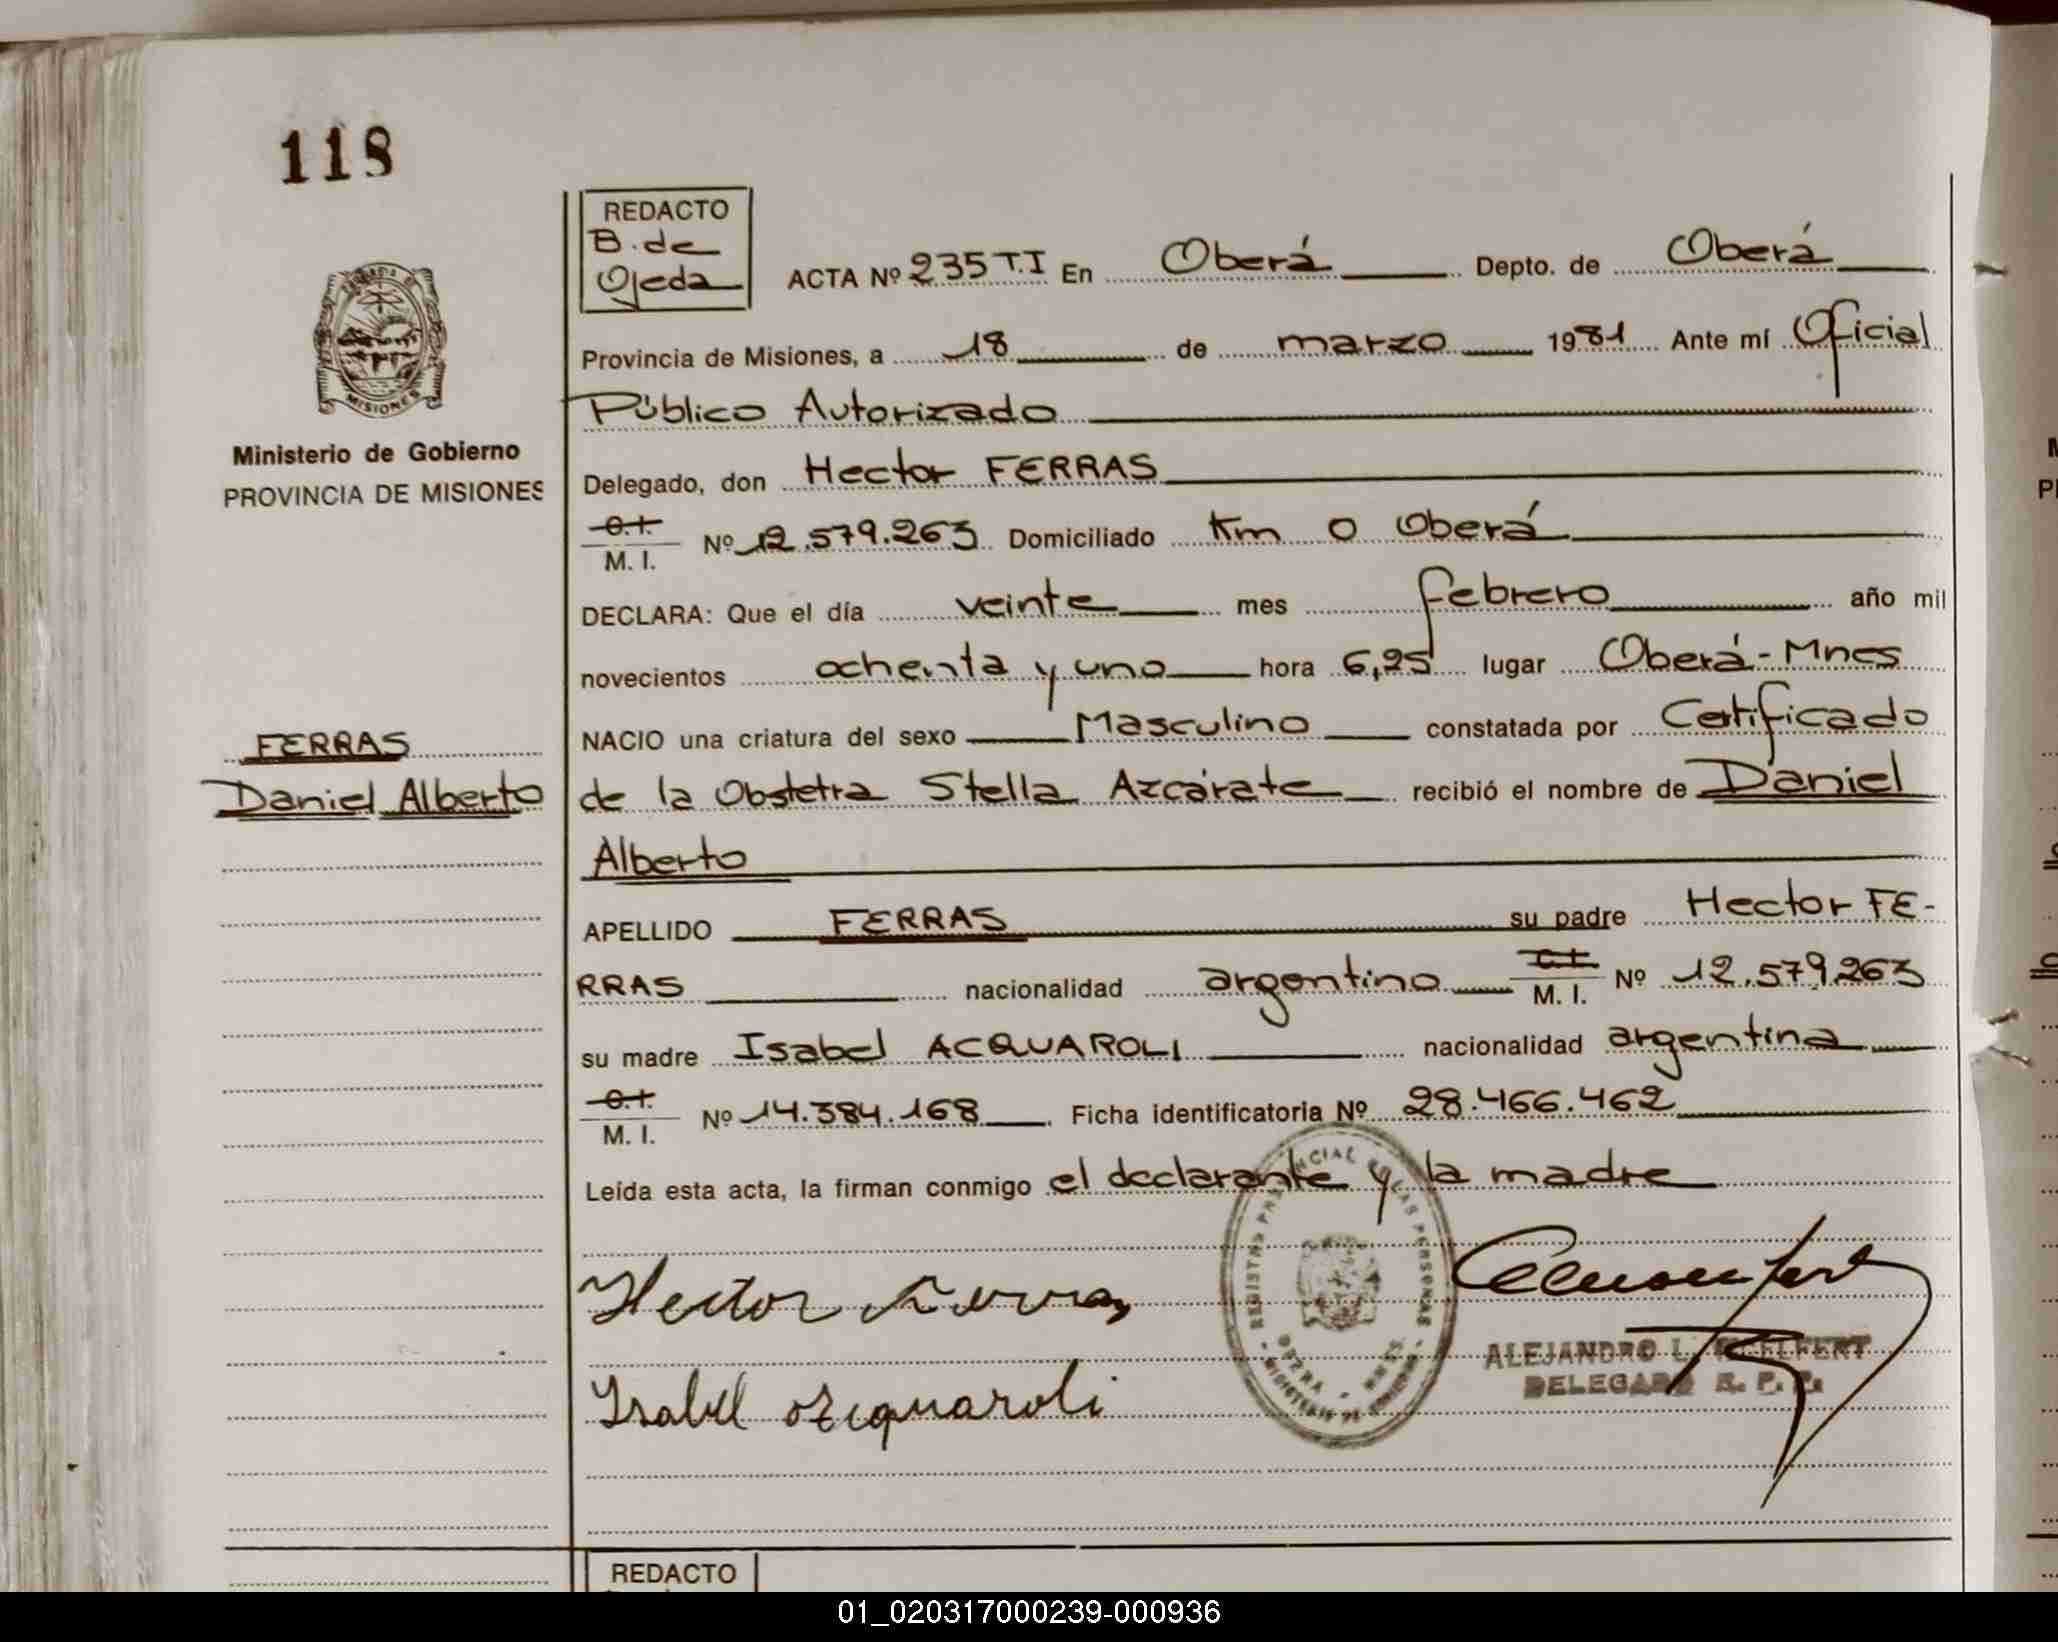 118
REDACTO
B. de
Ojeda
ACTA Nº 235 T.I En Oberá Depto. de Oberá
MISIONES
Provincia de Misiones, a 18 de marzo 1981 Ante mí Oficial
Público Autorizado
Ministerio de Gobierno
PROVINCIA DE MISIONES
Delegado, don Hector FERRAS
C.I.
M. I. Nº 12.579.263 Domiciliado Km 0 Oberá
DECLARA: Que el día veinte mes febrero año mil
novecientos ochenta y uno hora 6,25 lugar Oberá-Mnes
FERRAS
Daniel Alberto
NACIO una criatura del sexo Masculino constatada por Certificado
de la Obstetra Stella Azcárate recibió el nombre de Daniel
Alberto
APELLIDO FERRAS su padre Hector FE-
RRAS nacionalidad argentino C.I.
M. I. Nº 12.579.263
su madre Isabel ACQUAROLI nacionalidad argentina
C.I.
M. I. Nº 14.384.168 Ficha identificatoria Nº 28.466.462
Leída esta acta, la firman conmigo el declarante y la madre
Hector Ferras
Isabel Acquaroli
LAS PERSONAS
ALEJANDRO L.
DELEGADO R. P. P.
REDACTO
01_020317000239-000936